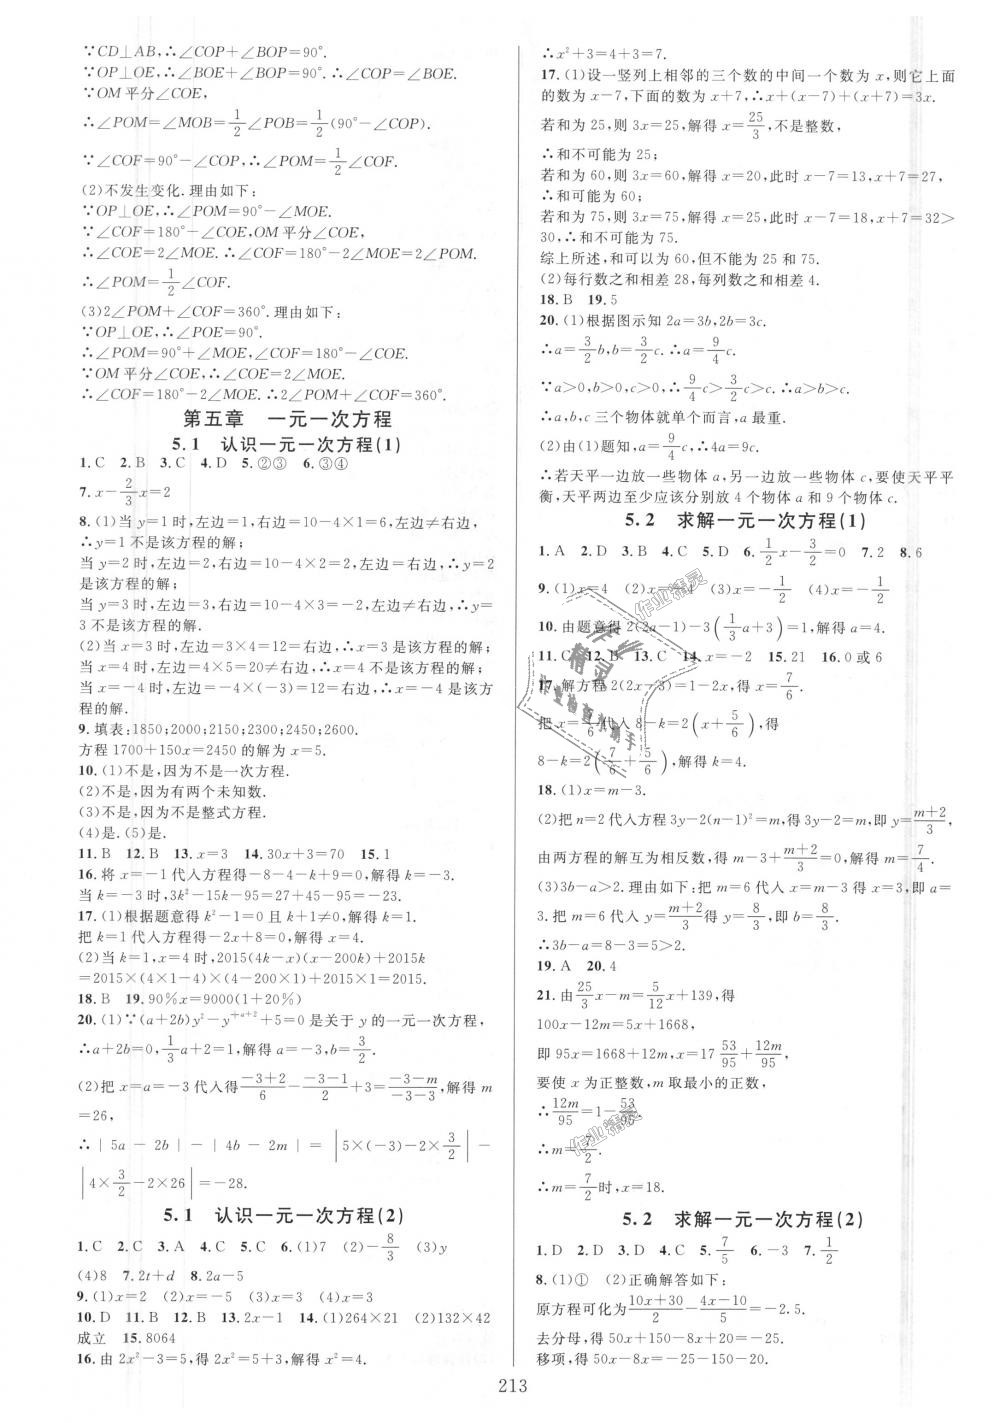 ∵CD⊥AB,∴∠COP+∠BOP=90°.
∵OP⊥OE,∴∠BOE+∠BOP=90°.∴∠COP=∠BOE.
∵OM平分∠COE,
∴∠POM=∠MOB=1/2∠POB=1/2(90°-∠COP).
∵∠COF=90°-∠COP,∴∠POM=1/2∠COF.
(2)不发生变化.理由如下:
∵OP⊥OE,∴∠POM=90°-∠MOE.
∵∠COF=180°-∠COE,OM平分∠COE,
∴∠COE=2∠MOE.∴∠COF=180°-2∠MOE=2∠POM.
∴∠POM=1/2∠COF.
(3)2∠POM+∠COF=360°.理由如下:
∵OP⊥OE,∴∠POE=90°.
∴∠POM=90°+∠MOE,∠COF=180°-∠COE.
∵OM平分∠COE,∴∠COE=2∠MOE.
∴∠COF=180°-2∠MOE.∴2∠POM+∠COF=360°.
第五章 一元一次方程
5.1 认识一元一次方程(1)
1.C 2.B 3.C 4.D 5.②③ 6.③④
7.x-2/3x=2
8.(1)当y=1时,左边=1,右边=10-4×1=6,左边≠右边,
∴y=1不是该方程的解;
当y=2时,左边=2,右边=10-4×2=2,左边=右边,∴y=2
是该方程的解;
当y=3时,左边=3,右边=10-4×3=-2,左边≠右边,∴y=
3不是该方程的解.
(2)当x=3时,左边=3×4=12=右边,∴x=3是该方程的解;
当x=4时,左边=4×5=20≠右边,∴x=4不是该方程的解;
当x=-4时,左边=-4×(-3)=12=右边,∴x=-4是该方
程的解.
9.填表:1850;2000;2150;2300;2450;2600.
方程1700+150x=2450的解为x=5.
10.(1)不是,因为不是一次方程.
(2)不是,因为有两个未知数.
(3)不是,因为不是整式方程.
(4)是.(5)是.
11.B 12.B 13.x=3 14.30x+3=70 15.1
16.将x=-1代入方程得-8-4-k+9=0,解得k=-3.
当k=-3时,3k²-15k-95=27+45-95=-23.
17.(1)根据题意得k²-1=0且k+1≠0,解得k=1.
把k=1代入方程得-2x+8=0,解得x=4.
(2)当k=1,x=4时,2015(4k-x)(x-200k)+2015k
=2015×(4×1-4)×(4-200×1)+2015×1=2015.
18.B 19.90%x=9000(1+20%)
20.(1)∵(a+2b)y²-y^(+a+2)+5=0是关于y的一元一次方程,
∴a+2b=0,1/3a+2=1,解得a=-3,b=3/2.
(2)把x=a=-3代入得(-3+2)/6-(-3-1)/2+3=(-3-m)/(-3-3),解得m
=26,
∴|5a-2b|-|4b-2m|=|5×(-3)-2×3/2|-
|4×3/2-2×26|=-28.
5.1 认识一元一次方程(2)
1.C 2.C 3.A 4.C 5.C 6.(1)7 (2)-8/3 (3)y
(4)8 7.2t+d 8.2a-5
9.(1)x=2 (2)x=-5 (3)x=3 (4)x=3
10.D 11.B 12.B 13.2x-1 14.(1)264×21 (2)132×42
成立 15.8064
16.由2x²-3=5,得2x²=5+3,解得x²=4.
∴x²+3=4+3=7.
17.(1)设一竖列上相邻的三个数的中间一个数为x,则它上面
的数为x-7,下面的数为x+7,∴x+(x-7)+(x+7)=3x.
若和为25,则3x=25,解得x=25/3,不是整数,
∴和不可能为25;
若和为60,则3x=60,解得x=20,此时x-7=13,x+7=27,
∴和可能为60;
若和为75,则3x=75,解得x=25,此时x-7=18,x+7=32>
30,∴和不可能为75.
综上所述,和可以为60,但不能为25和75.
(2)每行数之和相差28,每列数之和相差4.
18.B 19.5
20.(1)根据图示知2a=3b,2b=3c.
∴a=3/2b,b=3/2c.∴a=9/4c.
∵a>0,b>0,c>0,∴9/4c>3/2c>c.∴a>b>c.
∴a,b,c三个物体就单个而言,a最重.
(2)由(1)题知,a=9/4c,∴4a=9c.
∴若天平一边放一些物体a,另一边放一些物体c,要使天平平
衡,天平两边至少应该分别放4个物体a和9个物体c.
5.2 求解一元一次方程(1)
1.A 2.D 3.B 4.C 5.D 6.1/2x-3/2=0 7.2 8.6
9.(1)x=4 (2)x=-4 (3)x=-1/3 (4)x=-1/2
10.由题意得2(2a-1)-3(1/3a+3)=1,解得a=4.
11.C 12.B 13.C 14.x=-2 15.21 16.0或6
17.解方程2(2x-3)=1-2x,得x=7/6.
把x=7/6代入8-k=2(x+5/6),得
8-k=2(7/6+5/6),解得k=4.
18.(1)x=m-3.
(2)把n=2代入方程3y-2(n-1)²=m,得3y-2=m,即y=(m+2)/3,
由两方程的解互为相反数,得m-3+(m+2)/3=0,解得m=7/4.
(3)3b-a>2.理由如下:把m=6代入x=m-3得x=3,即a=
3.把m=6代入y=(m+2)/3得y=8/3,即b=8/3.
∴3b-a=8-3=5>2.
19.A 20.4
21.由25/3x-m=5/12x+139,得
100x-12m=5x+1668,
即95x=1668+12m,x=17 53/95+12m/95,
要使x为正整数,m取最小的正数,
∴12m/95=1-53/95.
∴m=7/2.
∴m=7/2时,x=18.
5.2 求解一元一次方程(2)
1.D 2.D 3.D 4.C 5.7/5 6.-3 7.1/2
8.(1)① (2)正确解答如下:
原方程可化为(10x+30)/2-(4x-10)/5=-2.5.
去分母,得50x+150-8x+20=-25.
移项,得50x-8x=-25-150-20.
213